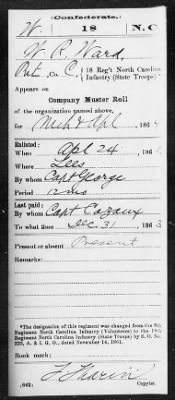 (Confederate.)
W. 18 N.C
W. R. Ward,
Pvt, Co. C, 18 Reg't North Carolina
Infantry (State Troops)*
Appears on
Company Muster Roll
of the organization named above,
for Mch & Apl, 186
Enlisted:
When Apl 24, 1861.
Where Lees
By whom Capt George
Period 12 ms
Last paid:
By whom Capt Cazaux
To what time Dec. 31, 1863
Present or absent Present
Remarks:
*The designation of this regiment was changed from the 8th
Regiment North Carolina Infantry (Volunteers) to the 18th
Regiment North Carolina Infantry (State Troops) by S. O. No.
222, A. & I. G. O., dated November 14, 1861.
Book mark:
(642) Copyist.